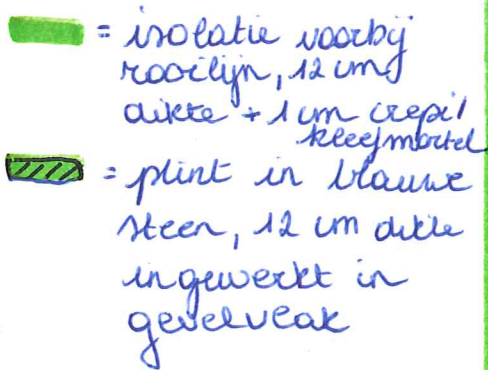 = isolatie voorbij
rooilijn, 12 cm
dikte + 1 cm crepi/
kleefmortel
= plint in blauwe
steen, 12 cm dikte
ingewerkt in
gevelvlak